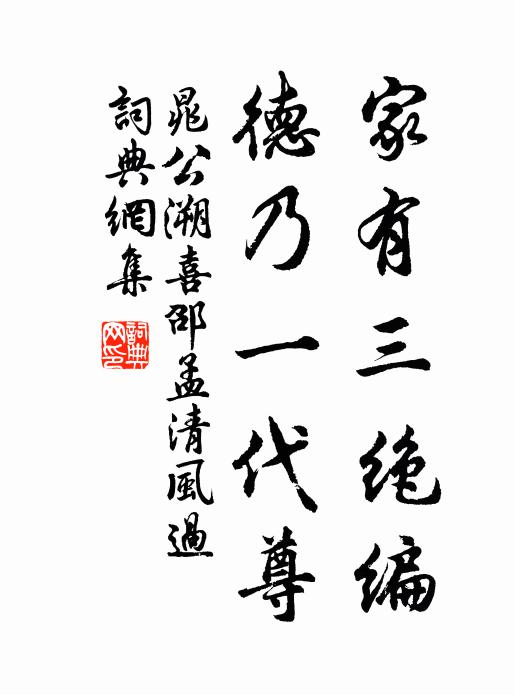 家有三絶編
德乃一代尊
晁公溯喜邵孟清風過
詞典網集
詞典网印